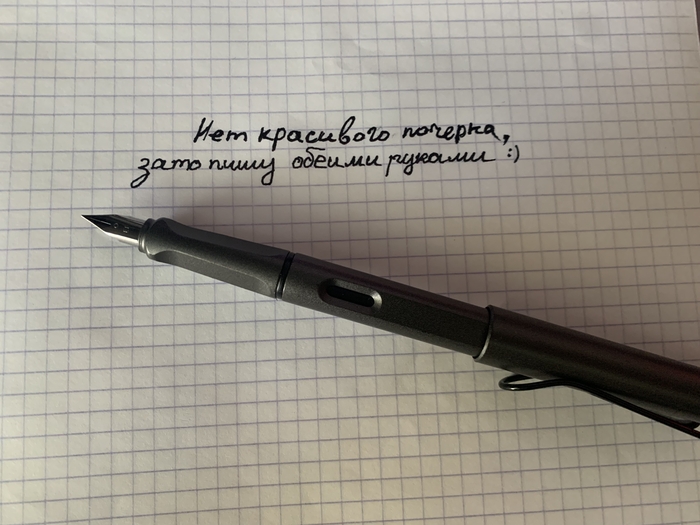 Нет красивого почерка,
зато пишу обеими руками :)